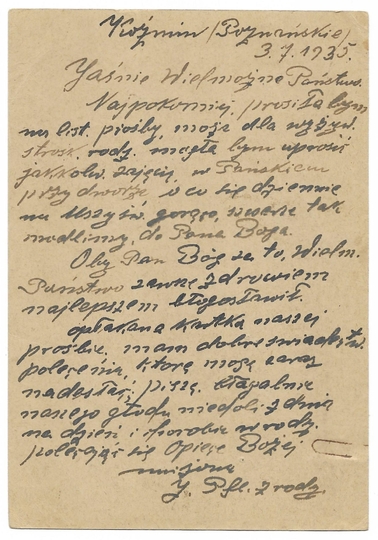 Koźmin (Poznańskie)
3.7.1935.
Jaśnie Wielmożne Państwo.
Najpokorniej, prosiła bym
na list. prośby, moja dla
strosk. rodz. mogła bym uprosić
jakkolw. zajęcia, w Pańskiem
przy dworze, o co się dziennie
na Mszy św. gorąco, zawsze tak
modlimy, do Pana Boga.
Oby Pan Bóg za to, Wielm.
Państwo zawsze zdrowiem
najlepszem błogosławił.
opłakana kartka naszej
prośbie, mam dobre świadectw.
polecenia, które mogę zaraz
nadesłać, piszę, błagalnie
naszego głodu niedoli z dnia
na dzień i chorobie w rodz.
polecając się Opiece Bożej
uniżona
z rodz.